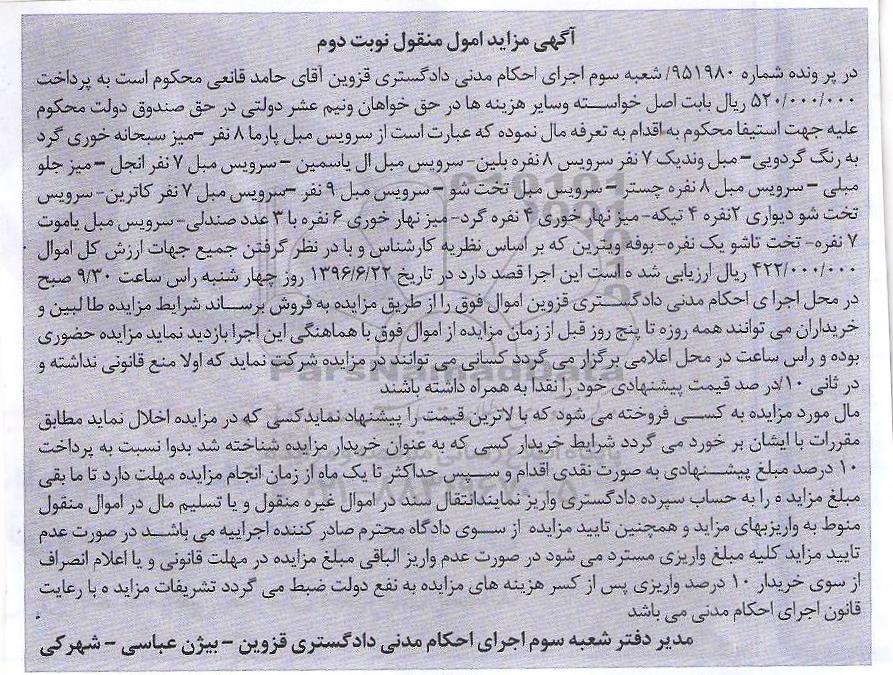 آگهی مزاید امول منقول نوبت دوم
در پر ونده شماره ۹۵۱۹۸۰/ شعبه سوم اجرای احکام مدنی دادگستری قزوین آقای حامد قانعی محکوم است به پرداخت
۵۲۰/۰۰۰/۰۰۰ ریال بابت اصل خواسته وسایر هزینه ها در حق خواهان ونیم عشر دولتی در حق صندوق دولت محکوم
علیه جهت استیفا محکوم به اقدام به تعرفه مال نموده که عبارت است از سرویس مبل پارما ۸ نفر –میز سبحانه خوری گرد
به رنگ گردویی– مبل وندیک ۷ نفر سرویس ۸ نفره بلین– سرویس مبل ال یاسمین – سرویس مبل ۷ نفر انجل – میز جلو
مبلی – سرویس مبل ۸ نفره چستر– سرویس مبل تخت شو – سرویس مبل ۹ نفر –سرویس مبل ۷ نفر کاترین– سرویس
تخت شو دیواری ۲نفره ۴ تیکه– میز نهار خوری ۴ نفره گرد– میز نهار خوری ۶ نفره با ۳ عدد صندلی– سرویس مبل یاموت
۷ نفره– تخت تاشو یک نفره– بوفه ویترین که بر اساس نظریه کارشناس و با در نظر گرفتن جمیع جهات ارزش کل اموال
۴۲۲/۰۰۰/۰۰۰ ریال ارزیابی شد ه است این اجرا قصد دارد در تاریخ ۱۳۹۶/۶/۲۲ روز چهار شنبه راس ساعت ۹/۳۰ صبح
در محل اجرا ی احکام مدنی دادگستری قزوین اموال فوق را از طریق مزایده به فروش برساند شرایط مزایده طا لبین و
خریداران می توانند همه روزه تا پنج روز قبل از زمان مزایده از اموال فوق با هماهنگی این اجرا بازدید نماید مزایده حضوری
بوده و راس ساعت در محل اعلامی برگزار می گردد کسانی می توانند در مزایده شرکت نماید که اولا منع قانونی نداشته و
در ثانی ۱۰/در صد قیمت پیشنهادی خود را نقدا به همراه داشته باشند
مال مورد مزایده به کسی فروخته می شود که با لاترین قیمت را پیشنهاد نمایدکسی که در مزایده اخلال نماید مطابق
مقررات با ایشان بر خورد می گردد شرایط خریدار کسی که به عنوان خریدار مزایده شناخته شد بدوا نسبت به پرداخت
۱۰ درصد مبلغ پیشنهادی به صورت نقدی اقدام و سپس حداکثر تا یک ماه از زمان انجام مزایده مهلت دارد تا ما بقی
مبلغ مزاید ه را به حساب سپرده دادگستری واریز نمایندانتقال سند در اموال غیره منقول و یا تسلیم مال در اموال منقول
منوط به واریزبهای مزاید و همچنین تایید مزایده از سوی دادگاه محترم صادر کننده اجراییه می باشد در صورت عدم
تایید مزاید کلیه مبلغ واریزی مسترد می شود در صورت عدم واریز الباقی مبلغ مزایده در مهلت قانونی و یا اعلام انصراف
از سوی خریدار ۱۰ درصد واریزی پس از کسر هزینه های مزایده به نفع دولت ضبط می گردد تشریفات مزاید ه با رعایت
قانون اجرای احکام مدنی می باشد
مدیر دفتر شعبه سوم اجرای احکام مدنی دادگستری قزوین – بیژن عباسی – شهرکی
ParsNamadData